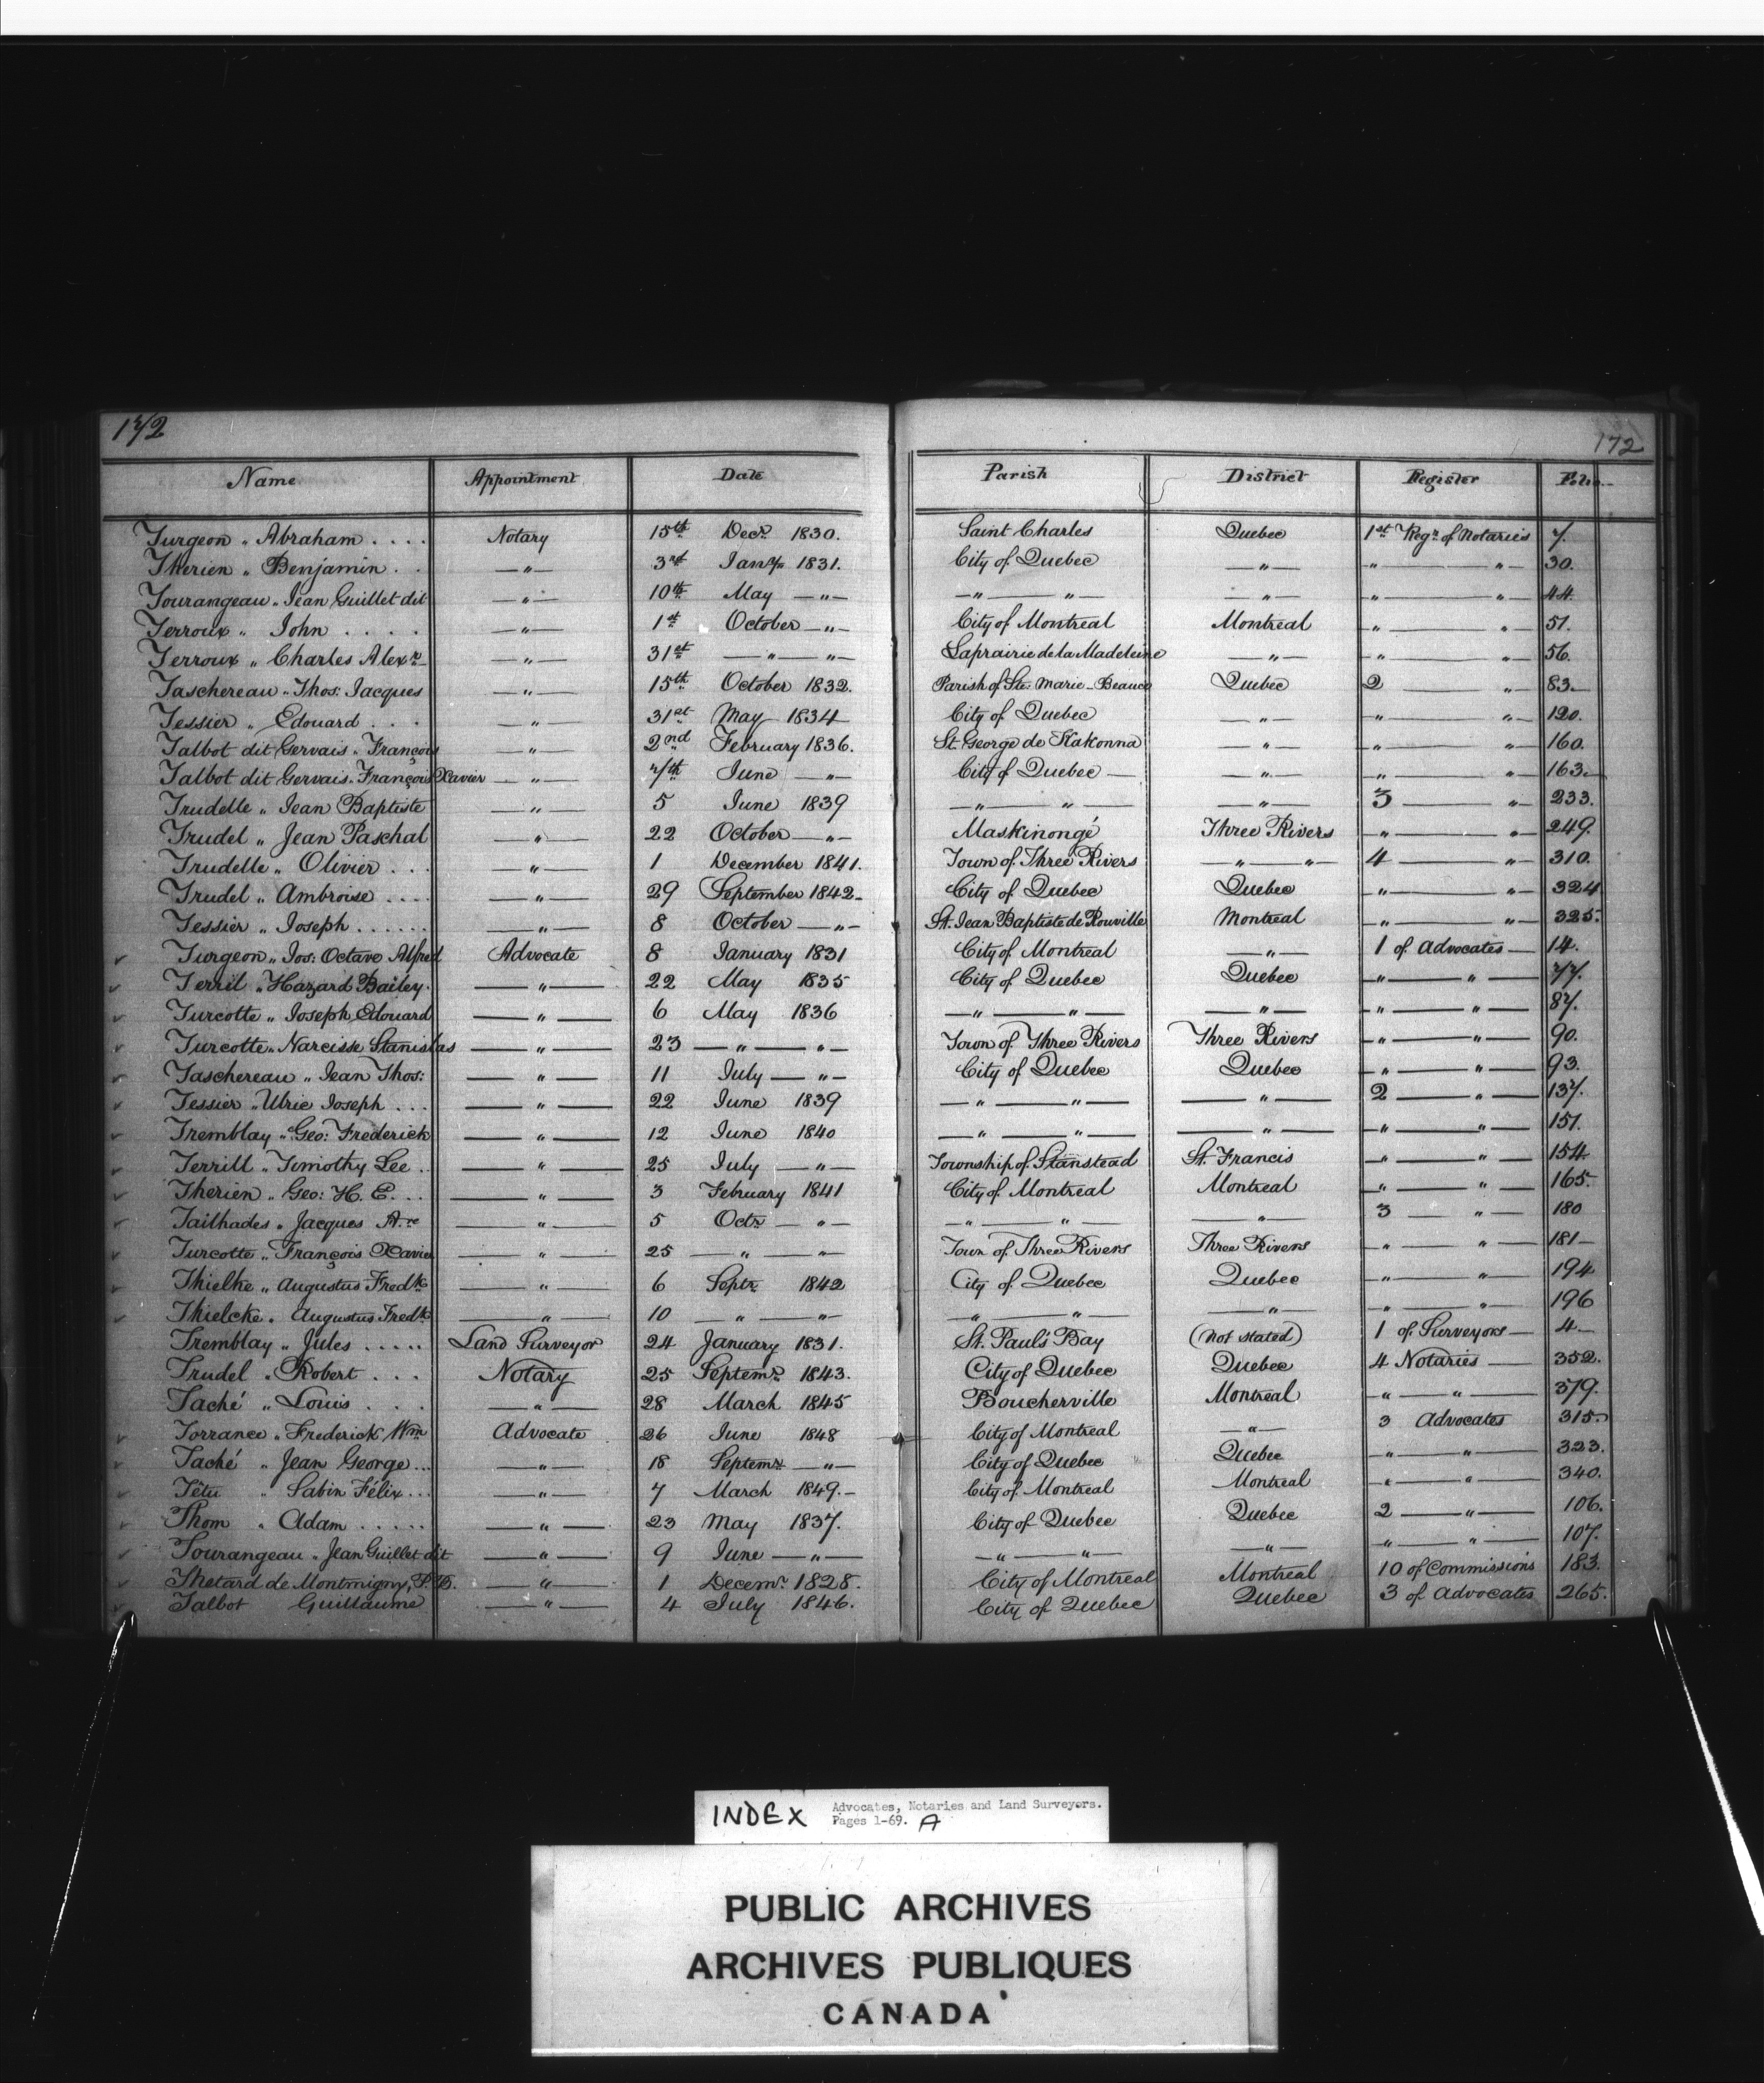 172
172
Name Appointment Date Parish District Register Folio
Turgeon „ Abraham . . . . Notary 15th Decr. 1830. Saint Charles Quebec 1st Regr. of Notaries 7.
Therien „ Benjamin . . —„— 3rd Jany 1831. City of Quebec —„— „ — „ — 30.
Tourangeau „ Jean Guillet dit —„— 10th May —„— —„— „— —„— „ — „ — 44.
Terroux „ John . . . . —„— 1st October —„— City of Montreal Montreal „ — „ 51.
Terroux „ Charles Alexr. —„— 31st —„— „— Laprairie de la Madeleine —„— „ — „— 56.
Taschereau „ Thos: Jacques —„— 15th October 1832. Parish of Ste. Marie - Beauce Quebec 2 — „— 83.
Tessier „ Edouard . . . —„— 31st May 1834 City of Quebec —„— „ — „— 120.
Talbot dit Gervais „ François —„— 2nd February 1836. St. George de Kakonna —„— „ — „— 160.
Talbot dit Gervais „ François Xavier —„— 7th June —„— City of Quebec — —„— „ — „— 163.
Trudelle „ Jean Baptiste —„— 5 June 1839 —„— „ — —„— 3 — „— 233.
Trudel „ Jean Paschal —„— 22 October —„— Maskinongé Three Rivers „ — „— 249.
Trudelle „ Olivier . . . —„— 1 December 1841. Town of Three Rivers —„— „— 4 — „— 310.
Trudel „ Ambroise . . . . —„— 29 September 1842 City of Quebec Quebec „ — „— 324
Tessier „ Joseph . . . . . . —„— 8 October —„— St. Jean Baptiste de Rouville Montreal „ — „— 325.
Turgeon „ Jos: Octave Alfred Advocate 8 January 1831 City of Montreal —„— 1 of Advocates — 14.
Terril „ Hazard Bailey. —„— 22 May 1835 City of Quebec Quebec „ — „ — 77.
Turcotte „ Joseph Edouard —„— 6 May 1836 —„— „— —„— „ — „ — 87.
Turcotte „ Narcisse Stanislas —„— 23 —„— „— Town of Three Rivers Three Rivers „ — „— 90.
Taschereau „ Jean Thos: —„— 11 July —„— City of Quebec Quebec „ — „ — 93.
Tessier „ Ulric Joseph . . . —„— 22 June 1839 —„— „— —„— 2 — „ — 137.
Tremblay „ Geo: Frederick —„— 12 June 1840 —„— „— —„— „ — „ — 151.
Terrill „ Timothy Lee . —„— 25 July —„— Township of Stanstead St. Francis „ — „ — 154
Therien „ Geo: H. E. . . —„— 3 February 1841 City of Montreal Montreal „ — „ — 165.
Tailhades „ Jacques Are —„— 5 Octr. —„— —„— „— —„— 3 — „ — 180
Turcotte „ François Xavier —„— 25 —„— „— Town of Three Rivers Three Rivers „ — „ — 181
Thielke „ Augustus Fredk. —„— 6 Septr. 1842 City of Quebec Quebec „ — „ — 194
Thielcke „ Augustus Fredk. —„— 10 —„— „— „ — „ — —„— „ — „ — 196
Tremblay „ Jules . . . . . Land Surveyor 24 January 1831. St. Paul's Bay (not stated) 1 of Surveyors — 4
Trudel „ Robert . . . Notary 25 Septemr. 1843. City of Quebec Quebec 4 Notaries — 352.
Taché „ Louis . . . —„— 28 March 1845 Boucherville Montreal „ — „ — 379.
Torrance „ Frederick Wm. Advocate 26 June 1848 City of Montreal —„— 3 Advocates 315.
Taché „ Jean George . . . —„— 18 Septemr. —„— City of Quebec Quebec „ — „ — 323.
Têtu „ Sabin Félix . . . —„— 7 March 1849. City of Montreal Montreal „ — „ — 340.
Thom „ Adam . . . . . —„— 23 May 1837. City of Quebec Quebec 2 — „ — 106.
Tourangeau „ Jean Guillet dit —„— 9 June —„— —„— „— —„— „ — „ — 107.
Thetard de Montmigny, P. —„— 1 Decemr. 1828. City of Montreal Montreal 10 of Commissions 183.
Talbot Guillaume —„— 4 July 1846. City of Quebec Quebec 3 of Advocates 265.
INDEX Advocates, Notaries and Land Surveyors.
Pages 1-69. A
PUBLIC ARCHIVES
ARCHIVES PUBLIQUES
CANADA